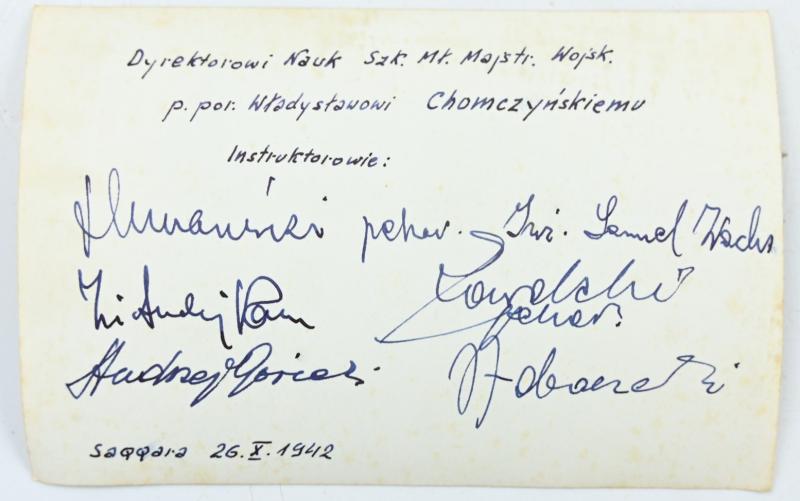 Dyrektorowi Nauk Szk. Mł. Majstr. Wojsk.
p. por. Władysławowi Chomczyńskiemu
Instruktorowie:
pchor. Inż. Samuel Wachs
Inż Andrzej
pchor.
Andrzej
Saqqara 26.X.1942